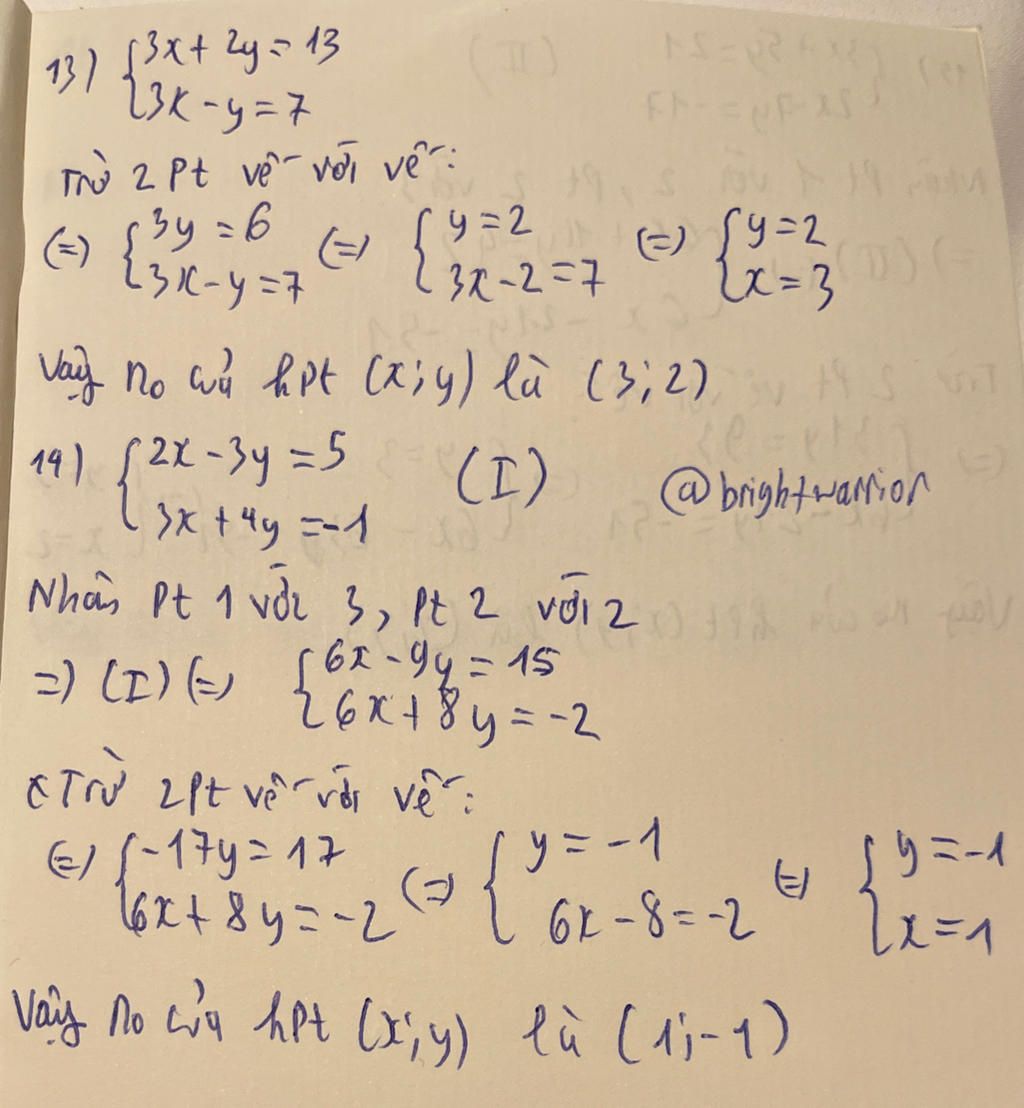 13) {3x + 2y = 13
{3x - y = 7
Trừ 2 Pt vế với vế:
(=) {3y = 6 (=) {y = 2 (=) {y = 2
{3x - y = 7 {3x - 2 = 7 {x = 3
Vậy no của hpt (x; y) là (3; 2)
14) {2x - 3y = 5 (I) @brightwarrior
{3x + 4y = -1
Nhân Pt 1 với 3, Pt 2 với 2
=) (I) (=) {6x - 9y = 15
{6x + 8y = -2
Trừ 2 Pt vế với vế:
(=) {-17y = 17 (=) {y = -1 (=) {y = -1
{6x + 8y = -2 {6x - 8 = -2 {x = 1
Vậy no của hpt (x; y) là (1; -1)